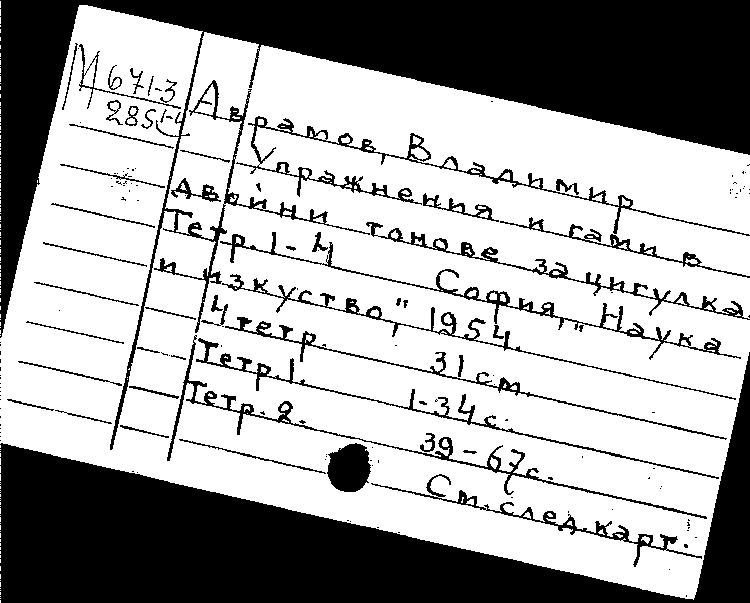 М 671-3
285 1-4
Аврамов, Владимир
Упражнения и гами в
двойни тонове за цигулка.
Тетр. 1-4 София, „Наука
и изкуство," 1954.
4 тетр. 31 см.
Тетр. 1. 1-34 с.
Тетр. 2. 39-67 с.
См. след. карт.